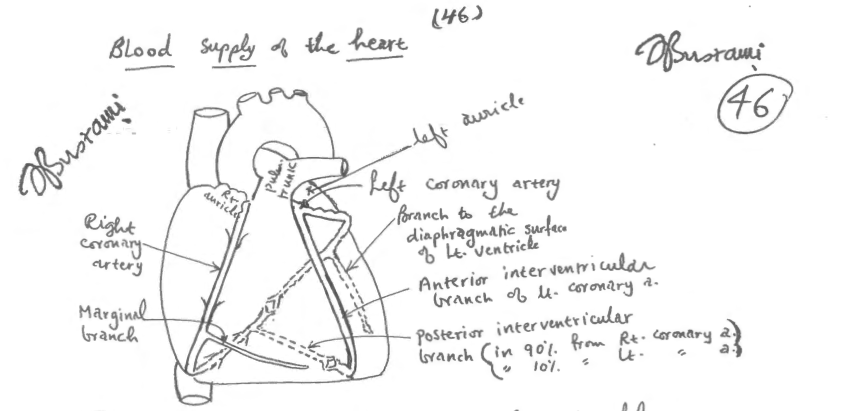 (46)
Blood supply of the heart
Bustami
46
Bustami
left auricle
Pulm.
trunk
Rt
auricle
Left coronary artery
Branch to the
diaphragmatic surface
of Lt. ventricle
Right
coronary
artery
Anterior interventricular
branch of Lt. coronary a.
Marginal
branch
Posterior interventricular
branch (in 90% from Rt. coronary a.)
" 10% " Lt. " a.)